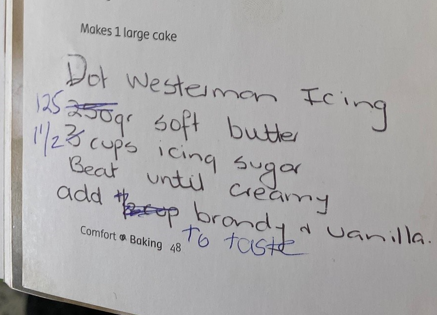 Makes 1 large cake
Dot Westerman Icing
125 250gr soft butter
1 1/2 3 cups icing sugar
Beat until creamy
add brandy & vanilla.
to taste
Comfort Baking 48